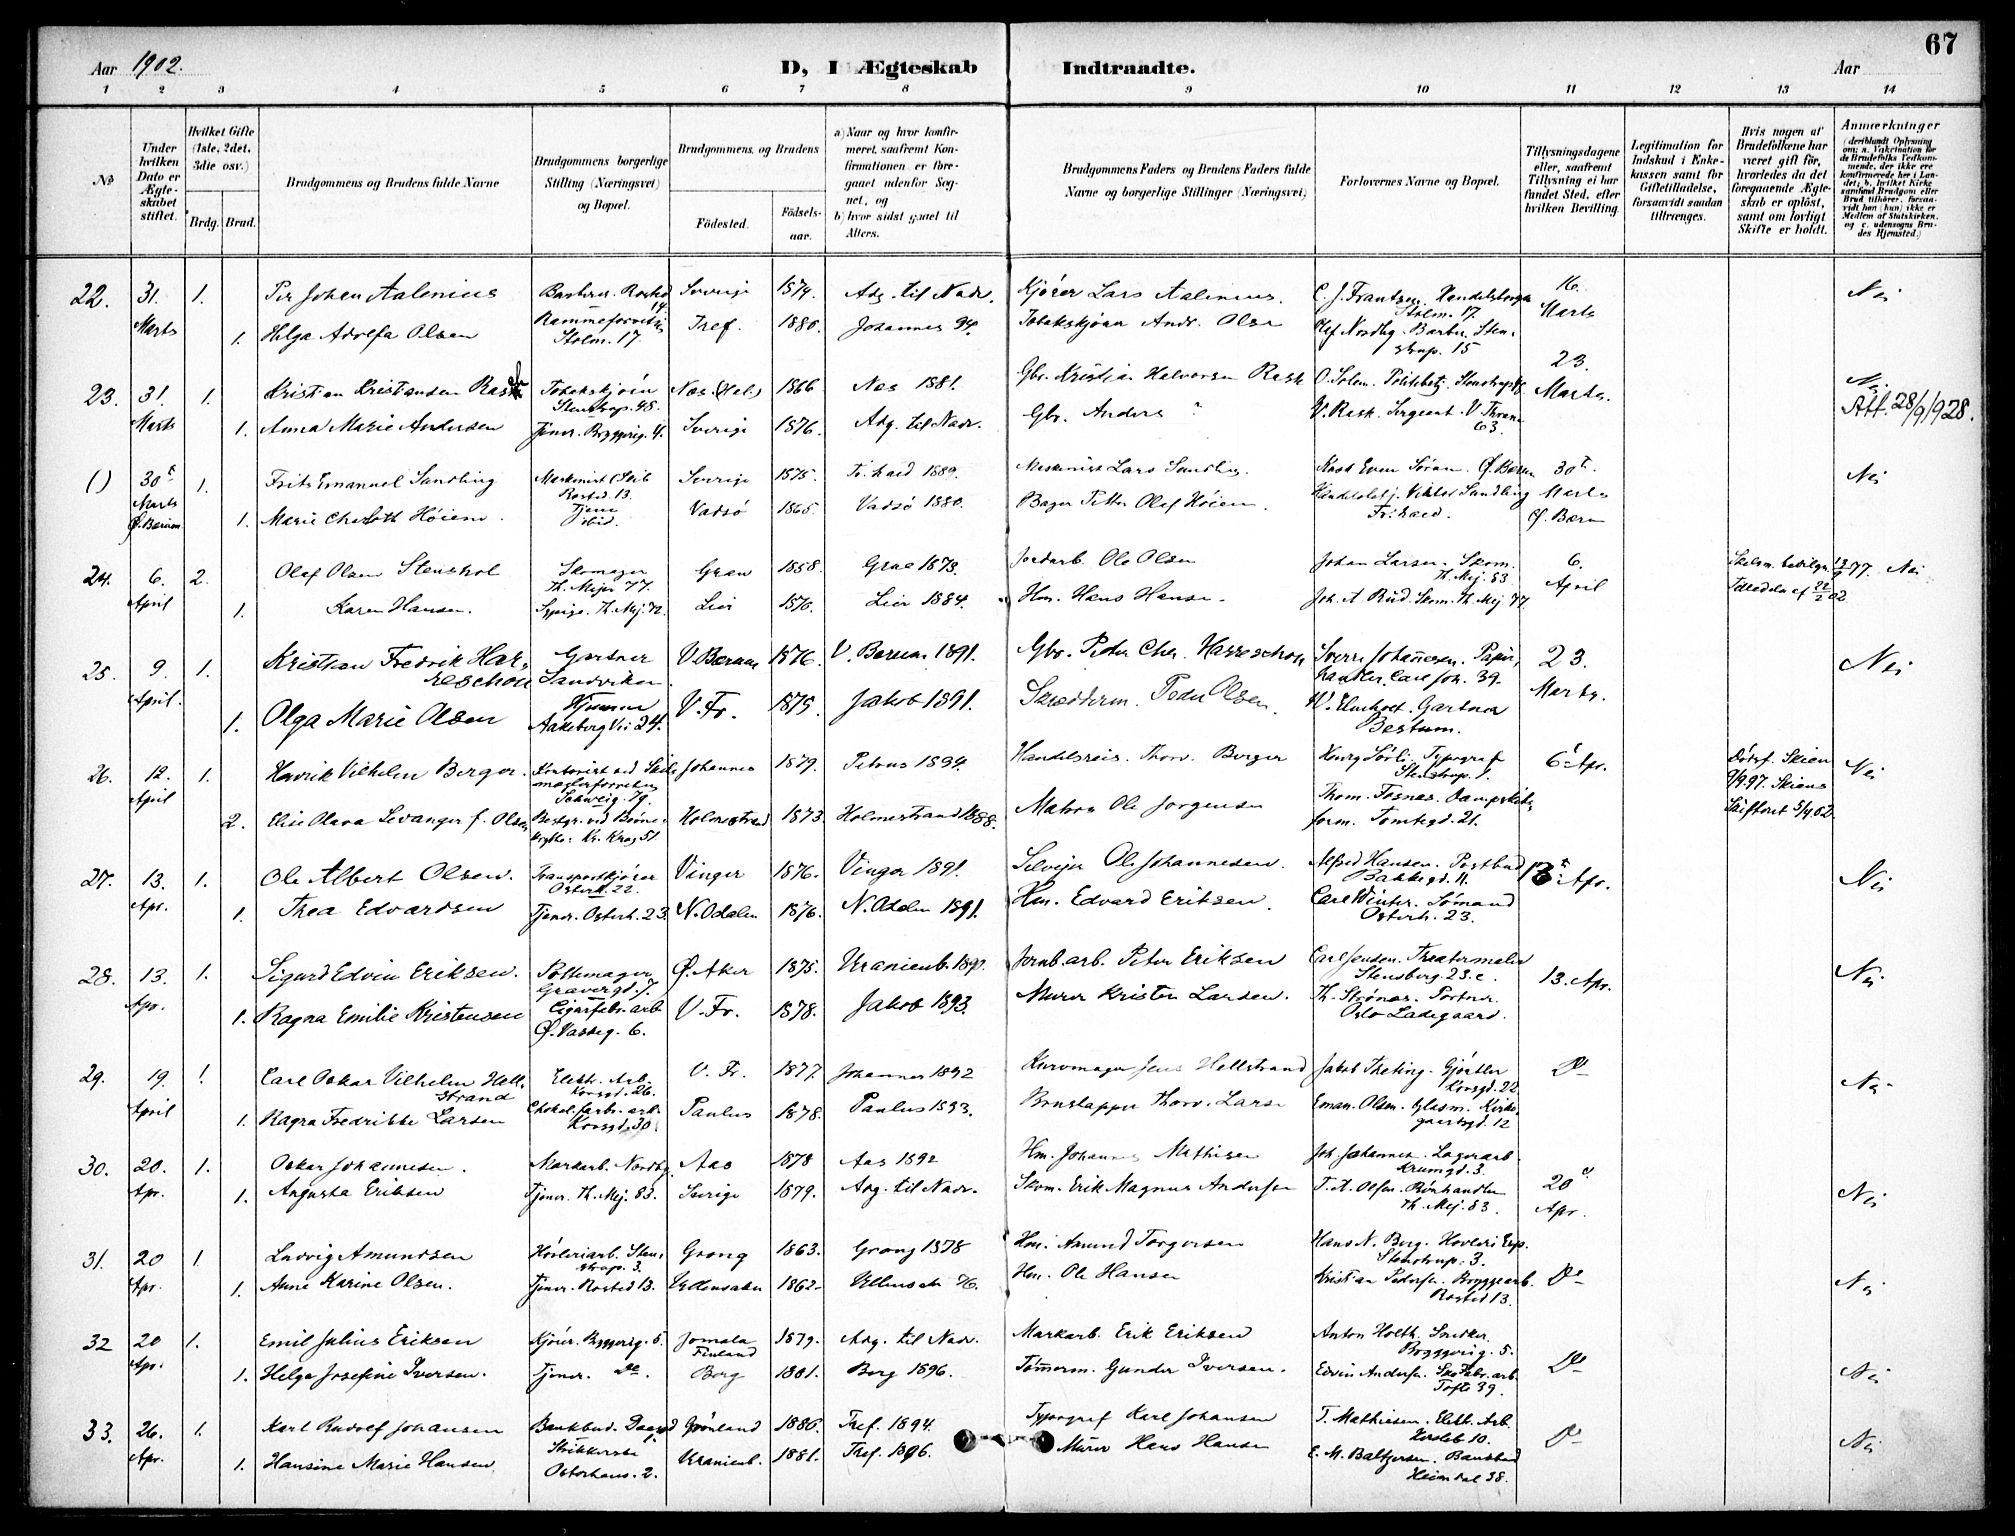 67
Aar 1902.
D, I Ægteskab Indtraadte.
Aar
1 2 3 4 5 6 7 8 9 10 11 12 13 14
№
Under hvilken Dato er Ægteskabet stiftet.
Hvilket Gifte (1ste, 2det, 3die osv.)
Brdg. Brud.
Brudgommens og Brudens fulde Navne
Brudgommens borgerlige Stilling (Næringsvei) og Bopæl.
Brudgommens og Brudens
Födested.
Födselsaar.
a) Naar og hvor konfirmeret, saafremt Konfirmationen er foregaaet udenfor Sognet, og
b) hvor sidst gaaet til Alters.
Brudgommens Faders og Brudens Faders fulde Navne og borgerlige Stillinger (Næringsvei)
Forlovernes Navne og Bopæl.
Tillysningsdagene eller, saafremt Tillysning ei har fundet Sted, efter hvilken Bevilling.
Legitimation for Indskud i Enkekassen samt for Giftetilladelse, forsaavidt saadan tiltrænges.
Hvis nogen af Brudefolkene har været gift før, hvorledes da det foregaaende Ægteskab er opløst, samt om lovligt Skifte er holdt.
Anmærkninger
(deriblandt Oplysning om: a. Vakcination for de Brudefolks Vedkommende, der ikke ere konfirmerede her i Landet; b. hvilket Kirkesamfund Brudgom eller Brud tilhører, forsaavidt han (hun) ikke er Medlem af Statskirken, og c. udensogns Brudes Hjemsted.)
22. 31. 1. Per Johan Aalenius Sverige 1874. Adg. til Nadv. Kjører Lars Aalenius. C. J. Frantzen. 16. Nei
Marts 1. Helga Adolfa Olsen Stolm. 17. Tref. 1880. Johannes 94. Tobakskjører Andr. Olsen Stolm. 17. Marts
15
23. 31. 1. Kristian Kristiansen Rask Stenstrup. 48. Næs (Hed.) 1866 Næs 1881. Gbr. Kristian Halvorsen Rask O. Solem. Politibetj. 23. Marts. Nei. Att. 28/9 1928.
Marts 1. Anna Marie Andersen Tjener. Byggerig. 4. Sverige 1876. Adg. til Nadv. Gbr. Anders ? V. Rask. Sergeant. V. Thrane 63.
() 30te 1. Frits Emanuel Sandling Rosted. 13. Sverige 1875. 1889. Maskinist Lars Sandling. 30te Nei
Marts Ø. Bærum 1. Marie Charloth Høiem. Tjene ibid. Vadsö 1865. Vadsö 1880. Bager Petter Olaf Høiem. Handelsbetj. Viktor Sandling Marts Ø. Bærum
24. 6. 2. Olaf Olsen Skomager Th. Mejer 77. Gran 1858. Gran 1873. Jordarb. Ole Olsen Johan Larsen. Skom. Th. Mej. 83. 6. April Nei
April 1. Karen Hansen. Syerige. Th. Mej. 72. Lier 1870. Lier 1884. Hm. Hans Hansen. Joh. A. Rud. Skom. Th. Mej. 77.
25. 9. 1. Kristian Fredrik Har- Gartner V. Bærum 1876. V. Bærum 1891. Gbr. Peter Chr. Harreschou Sverre Johannesen. Papir- 23. Nei
reschou Sandviken handler. Carl Joh. 39. Marts.
April. 1. Olga Marie Olsen Hjemme Aakeberg Vei 24. V. Fr. 1875. Jakob 1891. Skræderm. Peder Olsen. Gartner Bestum.
26. 12. 1. Henrik Vilhelm Berger. Kontorist ved Schweig. 79. Johannes 1879. Petrus 1894. Handelsreis. Thorv. Berger Typograf Stenstrup. 1. 6te Apr. Dödsf. Skien 9/9.97. Skiens Skifteret 5/4.02. Nei
April 2. Elise Olava Levanger f. Olsen Holmestrand 1873. Holmestrand 1888. Matros Ole Jørgensen Thom. Fosnæs. Tomtegd. 21.
27. 13. 1. Ole Albert Olsen. Transportkjører Osterh. 22. Vinger 1876. Vinger 1891. Selveier Ole Johannesen. Alfred Hansen. Postbud Bakkegd. 11. 13te Apr. Nei
Apr. 1. Thea Edvardsen Tjener. Osterh. 23. N. Odalen 1876. N. Odalen 1891. Hm. Edvard Eriksen. Carl Winter. Sømand Osterh. 23.
28. 13. 1. Sigurd Edvin Eriksen. Pottemager Gravergd. 7. Ø. Aker 1875. Uranienb. 1890. Jernb. arb. Peter Eriksen Carl Jensen. Theatermaler Stensberg. 23. c. 13. Apr. Nei
Apr. 1. Ragna Emilie Kristensen Cigarfabr. arb. Ø. Vasseg. 6. V. Fr. 1878. Jakob 1893. Murer Kristen Larsen. Th. Strønes. Portner. Oslo Ladegaard.
29. 19. 1. Carl Oskar Vilhelm Hell- Elektr. Arb. V. Fr. 1877. Johannes 1892 Kurvmager Jens Hellstrand Jakob Theting. Gjørtler Do Nei
strand Korsgd. 26. Korsgd. 22
April 1. Ragna Fredrikke Larsen Chokol. fabr. arb. Korsgd. 30. Paulus 1878. Paulus 1893. Thorv. Larsen Eman. Olsen. Glasm. Kirkegaardsgd. 12
30. 20. 1. Oskar Johannesen. Markarb. Nordby Aas 1878 Aas 1892 Hm. Johannes Mathisen Joh. Johannesen. Lagerarb. Krumgd. 3. 20de
Apr. 1. Augusta Eriksen Tjener. Th. Mej. 83. Sverige 1879. Adg. til Nadv. Skom. Erik Magnus Andersen T. A. Olsen. Th. Mej. 83. Apr. Nei
31. 20 1. Ludvig Amundsen Høvleriarb. Stenstrup. 3. Grong 1863. Grong 1878 Hm. Amund Torgersen Hans N. Berg. Høvleri Exp. Stenstrup. 3.
Apr. 1. Anne Karine Olsen. Tjener. Rosted 13. Ullensaker 1862. Ullensak. 76. Hm. Ole Hansen Kristian Pedersen. Bryggearb. Rosted 13. Do Nei
32 20 1. Emil Julius Eriksen Kjører. Byggerig. 5. Jomala Finland 1879. Adg. til Nadv. Markarb. Erik Eriksen Anton Holth. Snedker. Byggerig. 5.
Apr. 1. Helga Josefine Iversen. Tjener. Do. Borg 1881. Borg 1896. Tømmerm. Gunder Iversen. Edvin Andersen. Skofabr. arb. Tofte 39. Do Nei
33. 26. 1. Karl Rudolf Johansen Bankbud. Grønland 1880. Tref. 1894. Typograf Karl Johansen T. Mathisen. Elekt. Arb. Hersleb 10. Do
Apr. 1. Hansine Marie Hansen Osterhaus. 2. Uranienb. 1881. Tref. 1896. Murer Hans Hansen E. M. Baltzersen. Banebud Heimdal 38. Nei